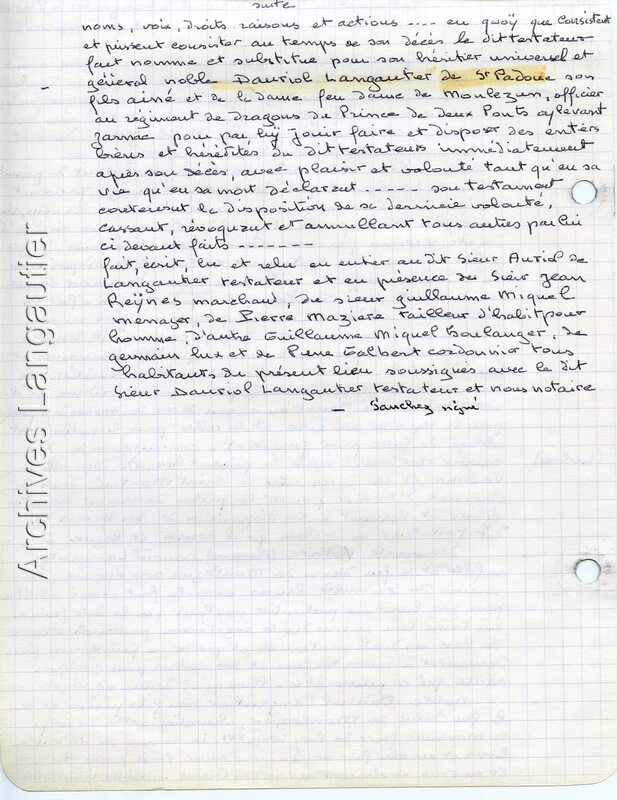 suite
noms, voix, droits raisons et actions .... en quoÿ que consistent
et puissent consister au temps de son décès le dit testateur
fait nommé et substitue pour son héritier universel et
général noble Dauriol Langautier de St Padoue son
fils ainé et de la dame feu dame de Moulezun, officier
au régiment de dragons du Prince de deux Ponts cy devant
Jarnac pour par luÿ jouir faire et disposer des entiers
biens et hérédités du dit testateurs immédiatement
après son décès, avec plaisir et volonté tant qu'en sa
vie qu'en sa mort déclarant ----- son testament
contenant la disposition de sa dernière volonté,
cassant, révoquant et annullant tous autres par lui
ci devant faits -------
fait, écrit, lu et relu en entier au dit Sieur Auriol de
Langautier testateur et en présence du Sieur Jean
Reÿnes marchand, du sieur guillaume Miquel
menager, de Pierre Maziere tailleur d'habit pour
homme, d'autre Guillaume Miquel boulanger, de
germain lux et de Pierre Galbert cordonnier tous
habitants du présent lieu soussignés avec le dit
Sieur Dauriol Langautier testateur et nous notaire
— Sanchez signé
Archives Langautier